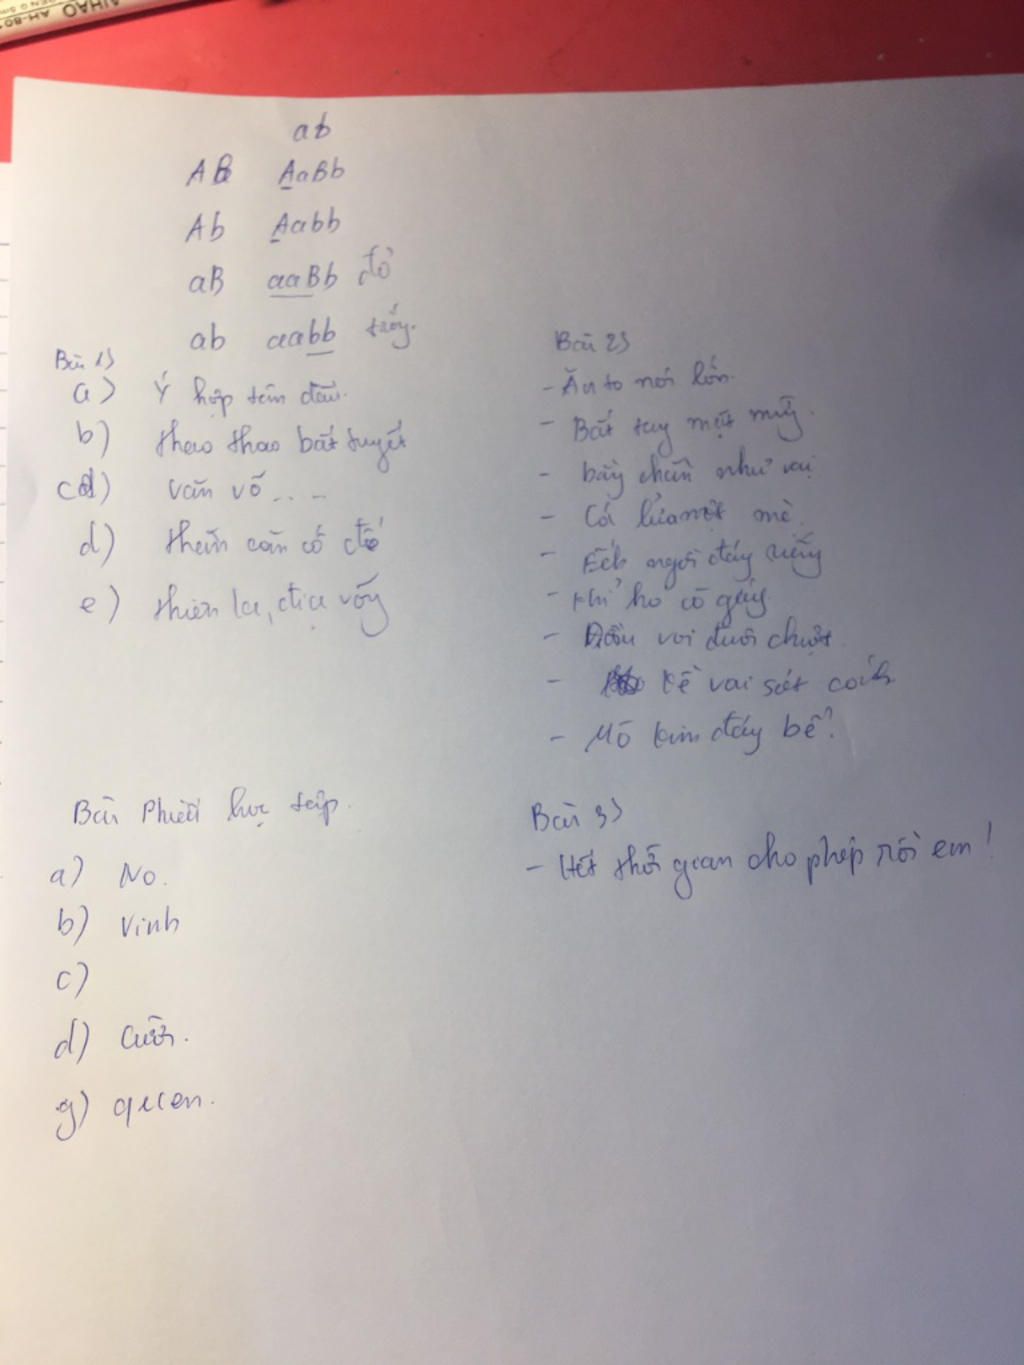 ab
AB AaBb
Ab Aabb
aB aaBb đỏ
ab aabb trắng.
Bài 1)
a) Ý hợp tâm đầu.
b) thao thao bất tuyệt
c) văn võ ...
d) thâm căn cố đế
e) thiên la, địa võng
Bài 2)
- Ăn to nói lớn.
- Bắt tay mặt mừng.
- bầy chần như vại
- Cá lửa mè.
- Ếch ngồi đáy giếng
- Khỉ ho cò gáy.
- Đầu voi đuôi chuột.
- Kề vai sát cánh
- Mò kim đáy bể?
Bài Phiếu học tập.
a) No.
b) Vinh
c)
d) Cười.
g) quen.
Bài 3)
- Hết thời gian cho phép rồi em!